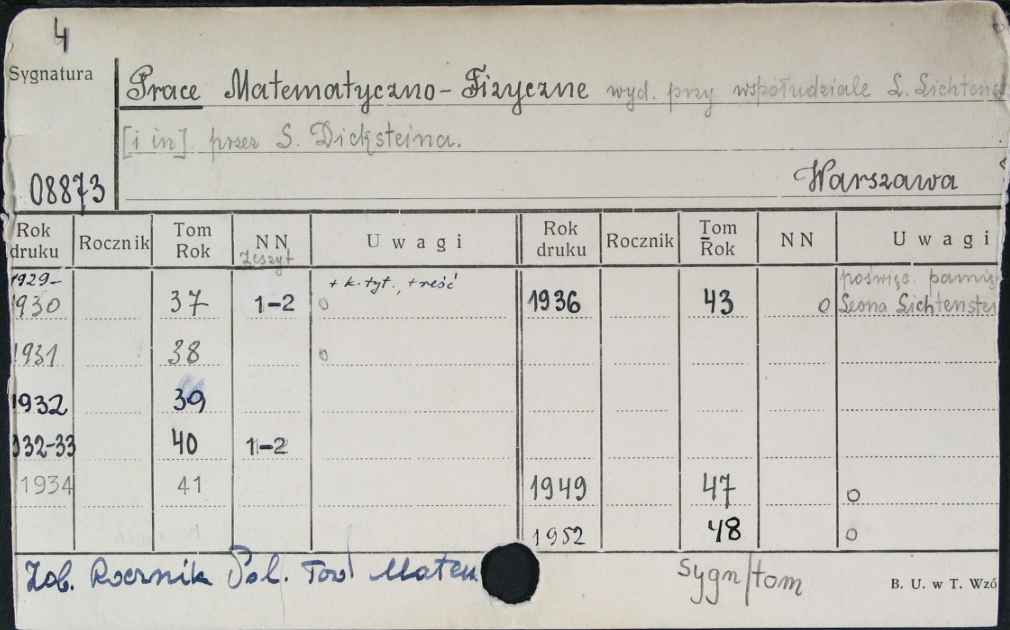 4
Sygnatura
Prace Matematyczno-Fizyczne wyd. przy współudziale L. Lichtenst
[i in] przez S. Dicksteina.
08873
Warszawa
Rok druku Rocznik Tom Rok NN Zeszyt Uwagi Rok druku Rocznik Tom Rok NN Uwagi
1929-
1930 37 1-2 + k. tyt., + treść o 1936 43 o poświęc. pamię
Leona Lichtenstei
1931 38 o
1932 39
932-33 40 1-2
1934 41 1949 47 o
1952 48 o
Zob. Rocznik Pol. Tow Matem
Sygn/tom
B. U. w T. Wzó